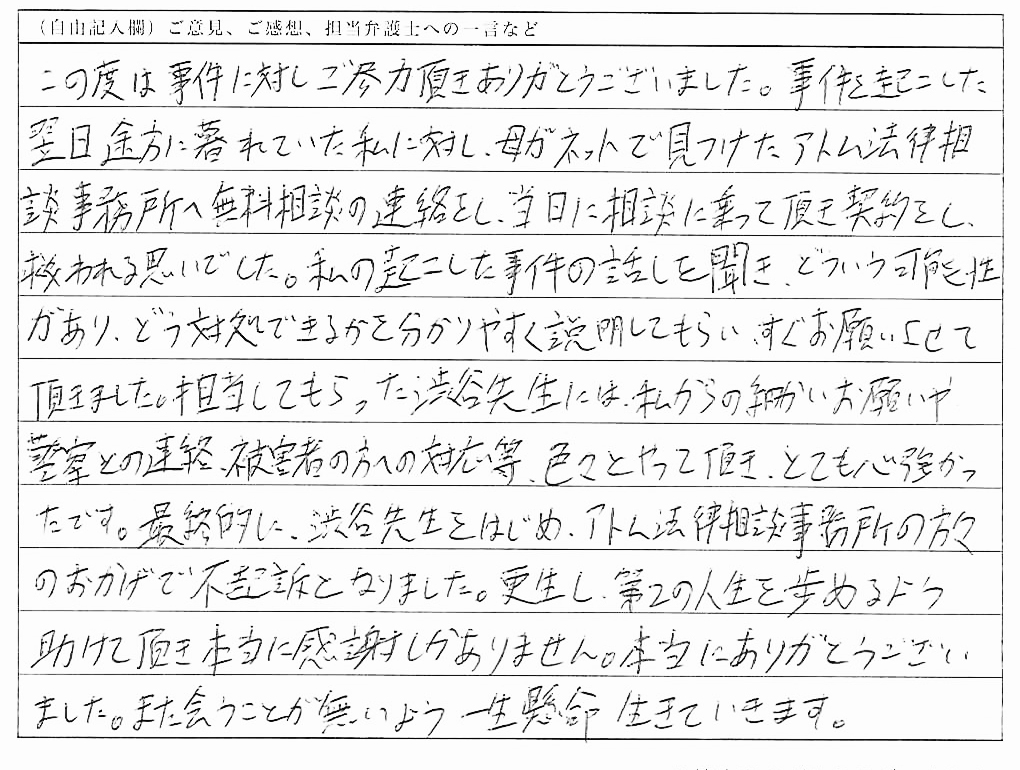 （自由記入欄）ご意見、ご感想、担当弁護士への一言など
この度は事件に対しご参力頂きありがとうございました。事件を起こした
翌日途方に暮れていた私に対し、母がネットで見つけたアトム法律相
談事務所へ無料相談の連絡をし、当日に相談に乗って頂き契約をし、
救われる思いでした。私の起こした事件の話しを聞き、どういう可能性
があり、どう対処できるかを分かりやすく説明してもらい、すぐお願いさせて
頂きました。担当してもらった渋谷先生には、私からの細かいお願いや
警察との連絡、被害者の方への対応等、色々とやって頂き、とても心強かっ
たです。最終的に、渋谷先生をはじめ、アトム法律相談事務所の方々
のおかげで不起訴となりました。更生し、第2の人生を歩めるよう
助けて頂き本当に感謝しかありません。本当にありがとうござい
ました。また会うことが無いよう一生懸命生きていきます。